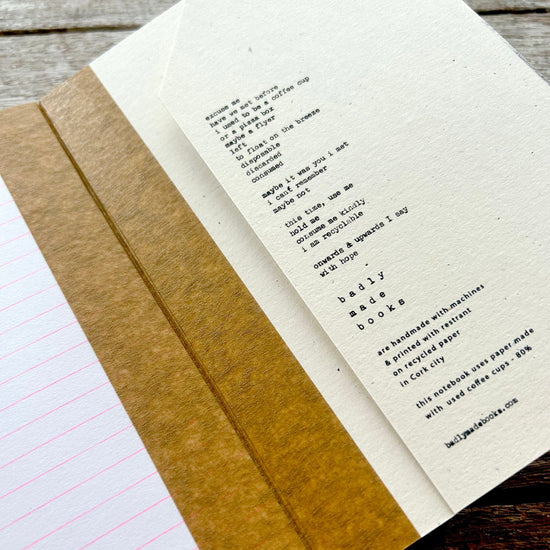 excuse me
have we met before
i used to be a coffee cup
or a pizza box
maybe a flyer
left
to float on the breeze
disposable
discarded
consumed
maybe it was you i met
i canf remember
maybe not
this time, use me
hold me
consume me kindly
i am recyclable
onwards & upwards I say
with hope
-
badly
made
books
are handmade with machines
& printed with restrant
on recycled paper
in Cork city
this notebook uses paper made
with used coffee cups - 80%
badlymadebooks.com